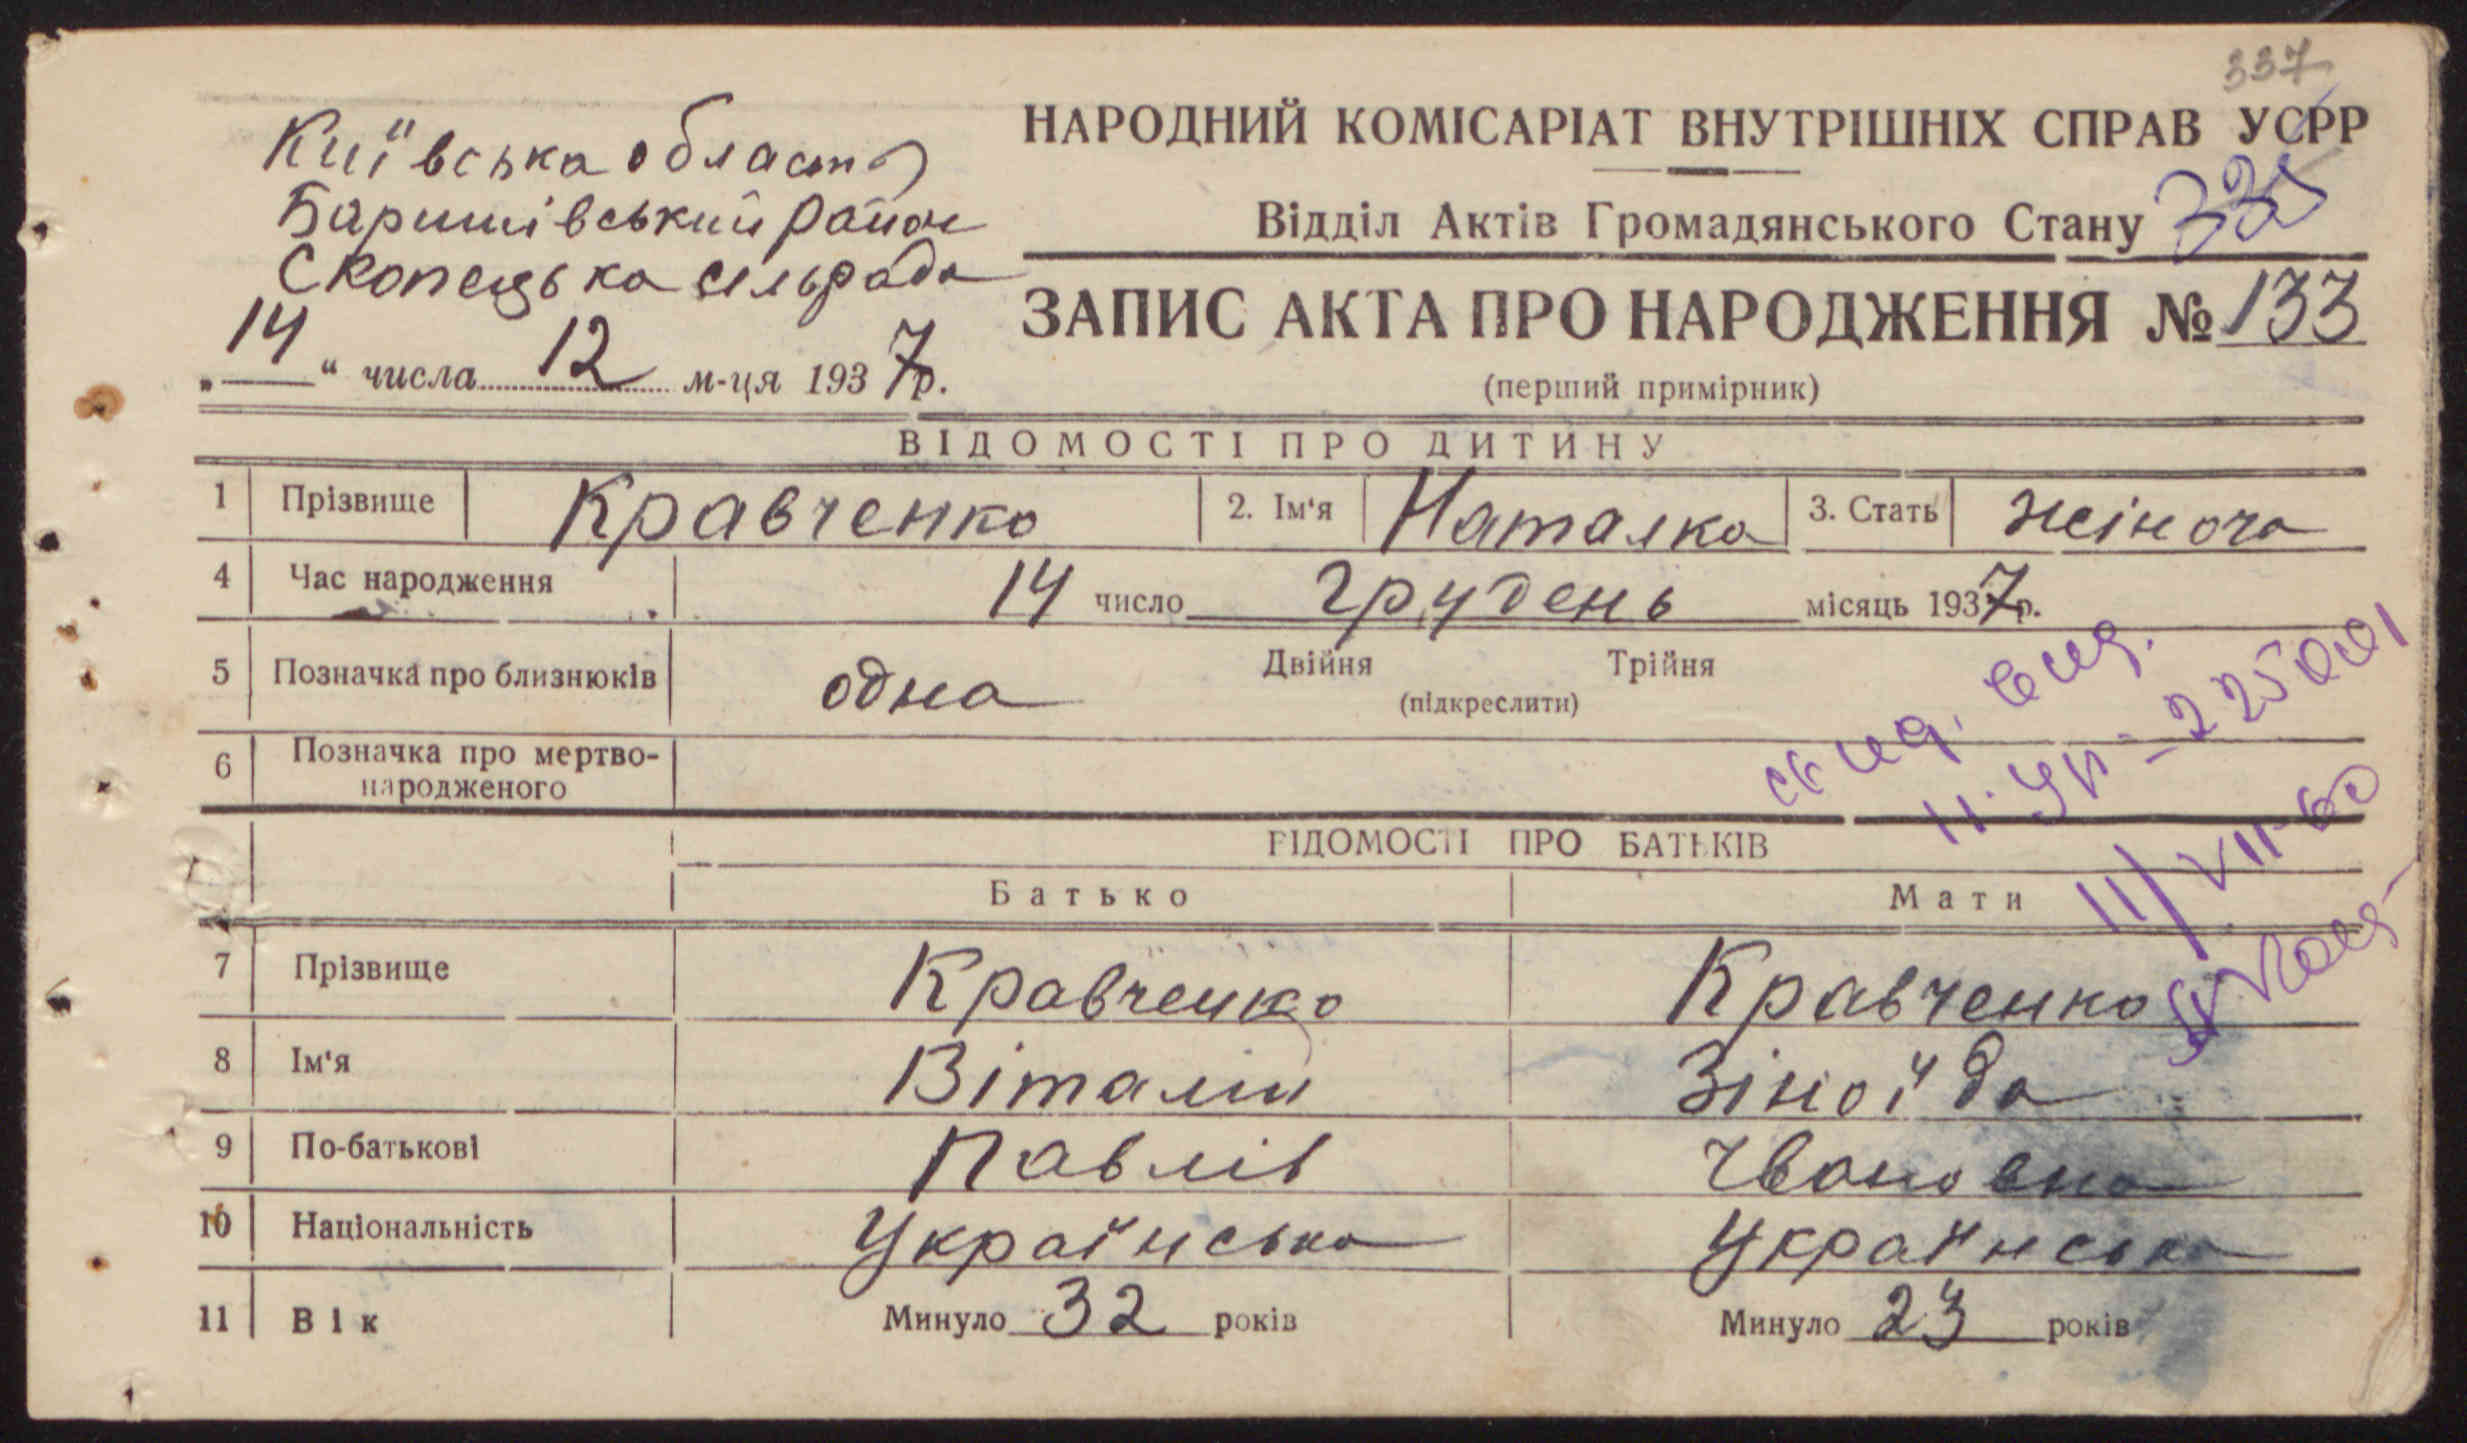 337
Київська область
Баришівський район
Скопецька сільрада
НАРОДНИЙ КОМІСАРІАТ ВНУТРІШНІХ СПРАВ УСРР
Відділ Актів Громадянського Стану 335
ЗАПИС АКТА ПРО НАРОДЖЕННЯ № 133
„14“ числа 12 м-ця 1937 р.
(перший примірник)
ВІДОМОСТІ ПРО ДИТИНУ
1 Прізвище Кравченко 2. Ім'я Наталка 3. Стать жіноча
4 Час народження 14 число грудень місяць 1937 р.
5 Позначка про близнюків одна Двійня Трійня
(підкреслити)
6 Позначка про мертво-
народженого
ВІДОМОСТІ ПРО БАТЬКІВ
Батько Мати
11/VII-60
7 Прізвище Кравченко Кравченко
8 Ім'я Віталій Зіноїда
9 По-батькові Павлів Івановна
10 Національність Українська Українська
11 Вік Минуло 32 років Минуло 23 років